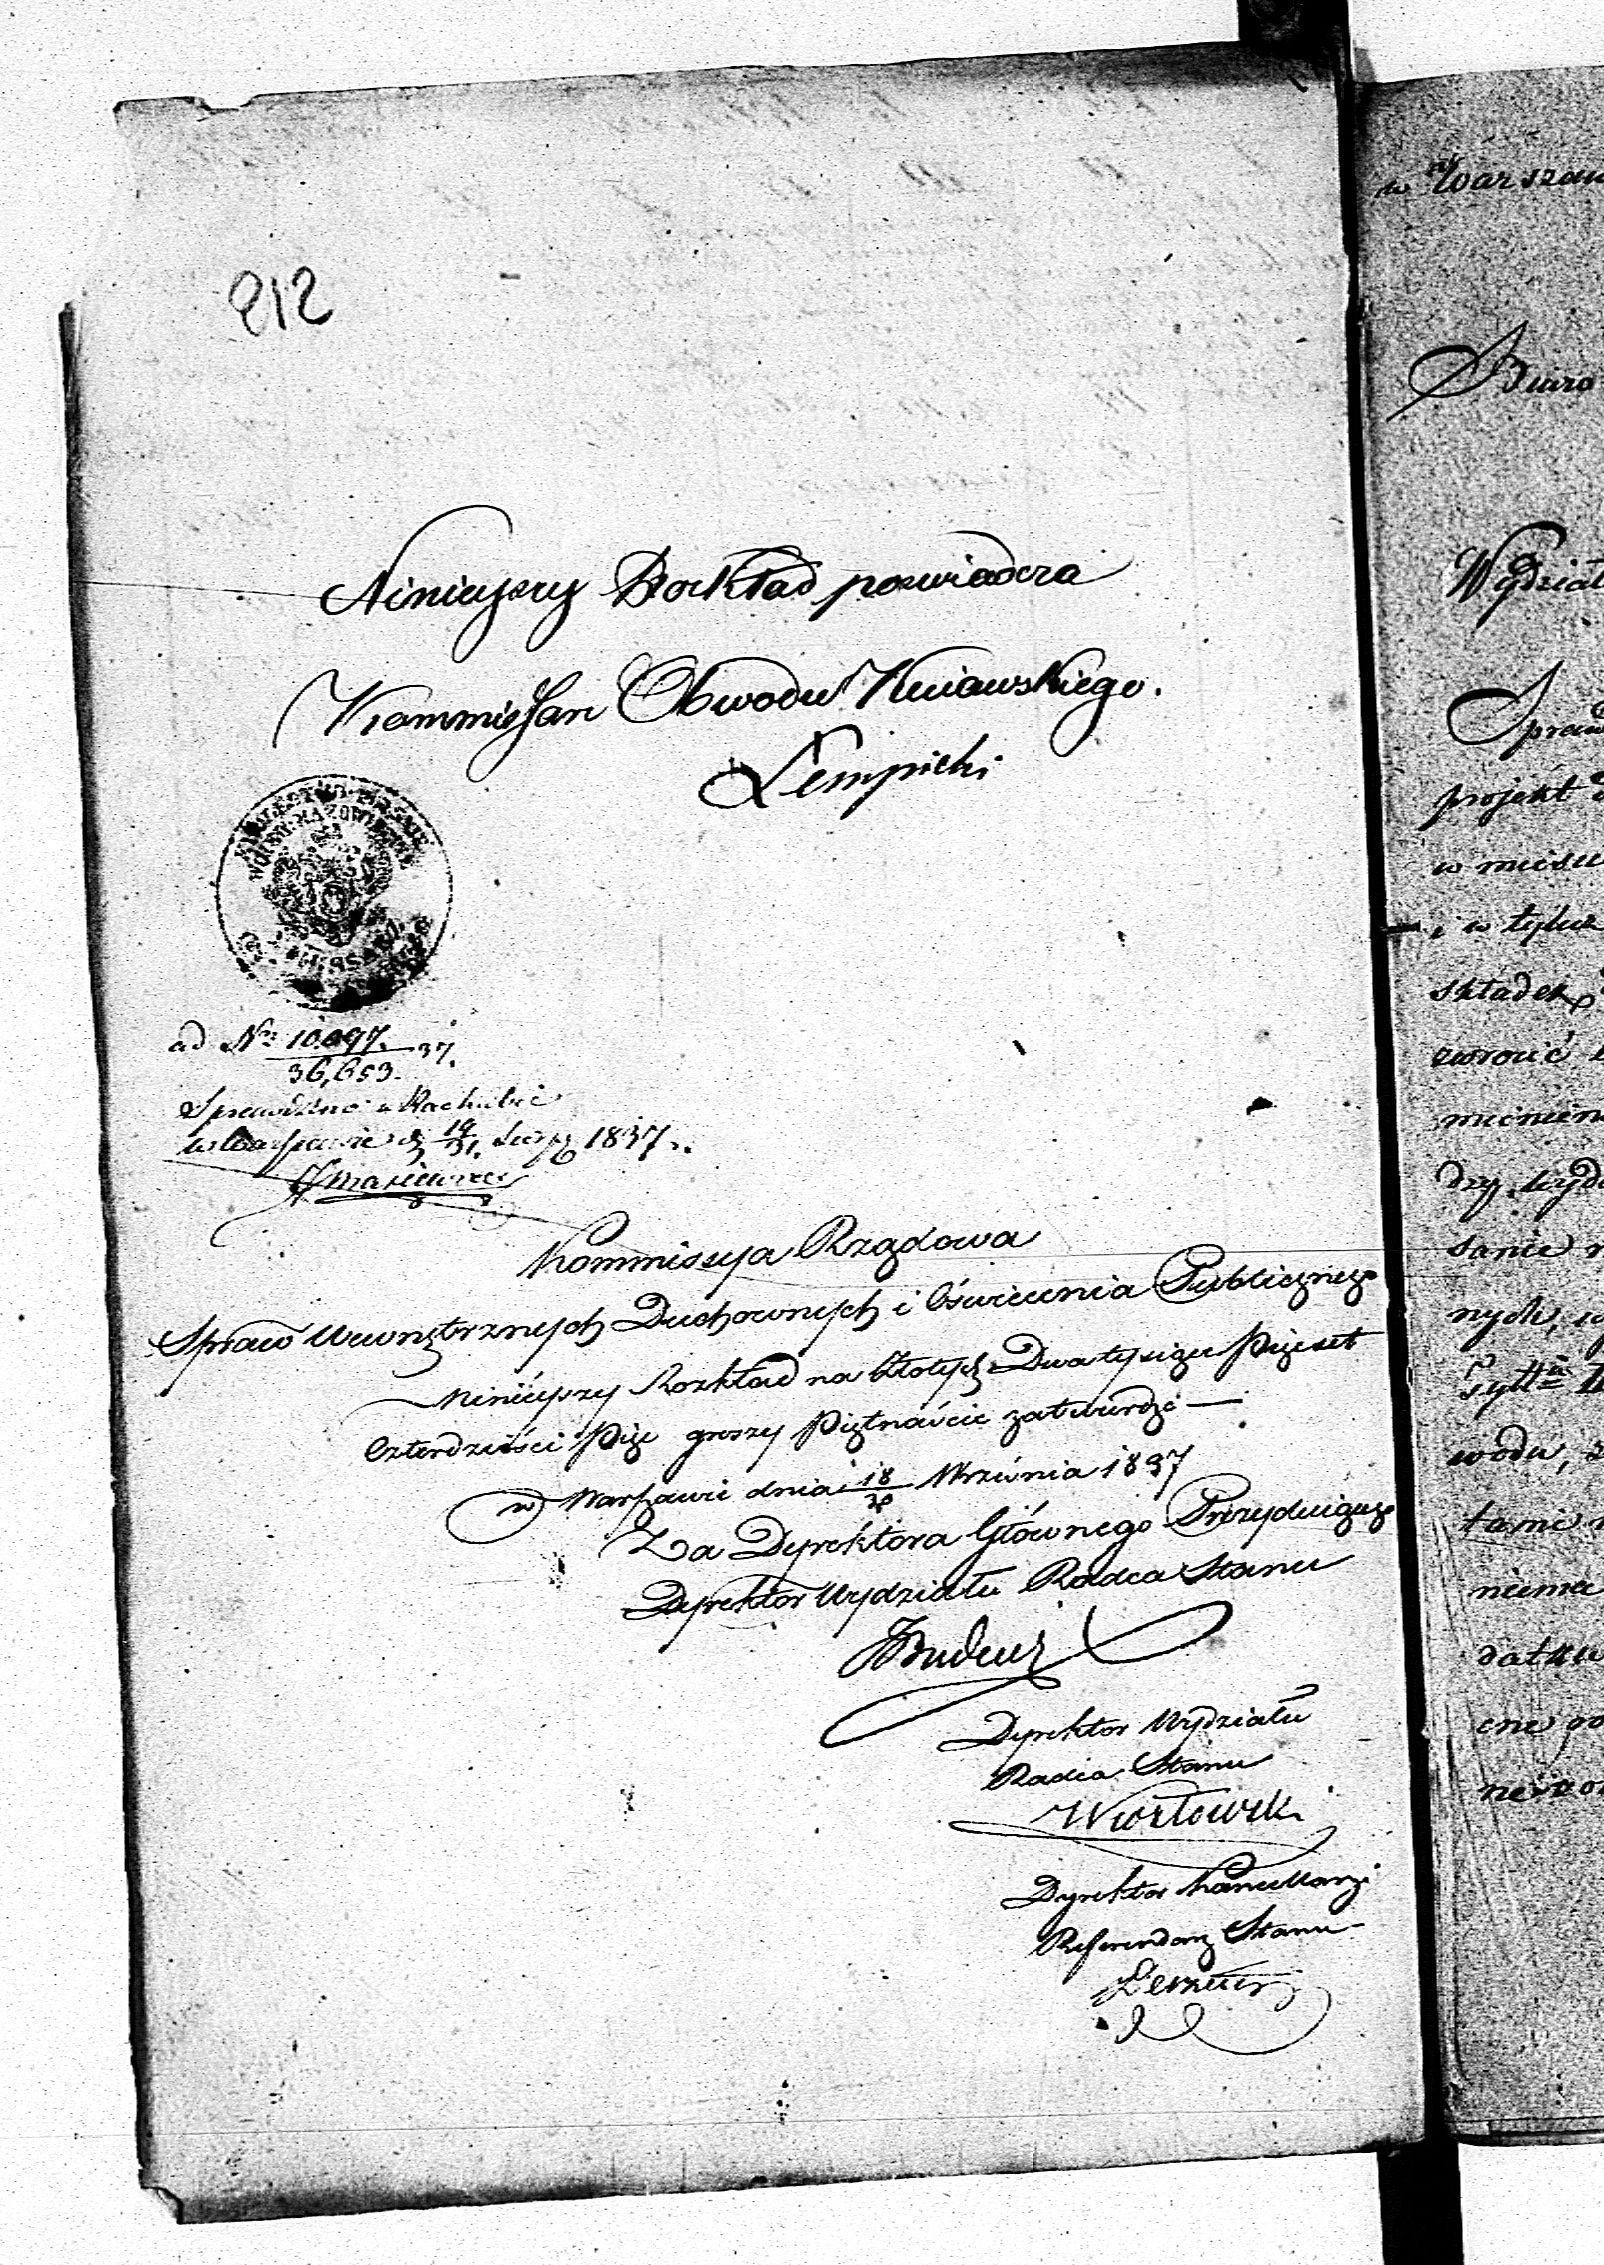 212
Ninieyszy Rozkład poswiadcza
Kommissarz Obwodu Kuiawskiego.
Łempicki
WOIEW. MAZOWIE
ad Nro 10,097. 37.
36,653.
Sprawdzono w Rachubie
w Warszawie d 19/31 Sierp 1837.
Kommissya Rządowa
Spraw Wewnętrznych Duchownych i Oświecenia Publicznego
Ninieyszy Rozkład na Złotych Dwa tysiące Pięćset
Czterdzieści Pięć groszy Piętnaście zatwierdza —
w Warszawie dnia 18/30 Września 1837
Za Dyrektora Głównego Prezyduiącego
Dyrektor Wydziału Radca Stanu
Dyrektor Wydziału
Radca Stanu
Kozłowski
Dyrektor Kancellaryi
Referendarz Stanu
w Warszaw
Biuro
Wydział
Spraw
projekt
w mieś
i w tyłuż
składek
zwrócić
dzy
sanie
nych,
wodu,
tami
niema
datku
cne